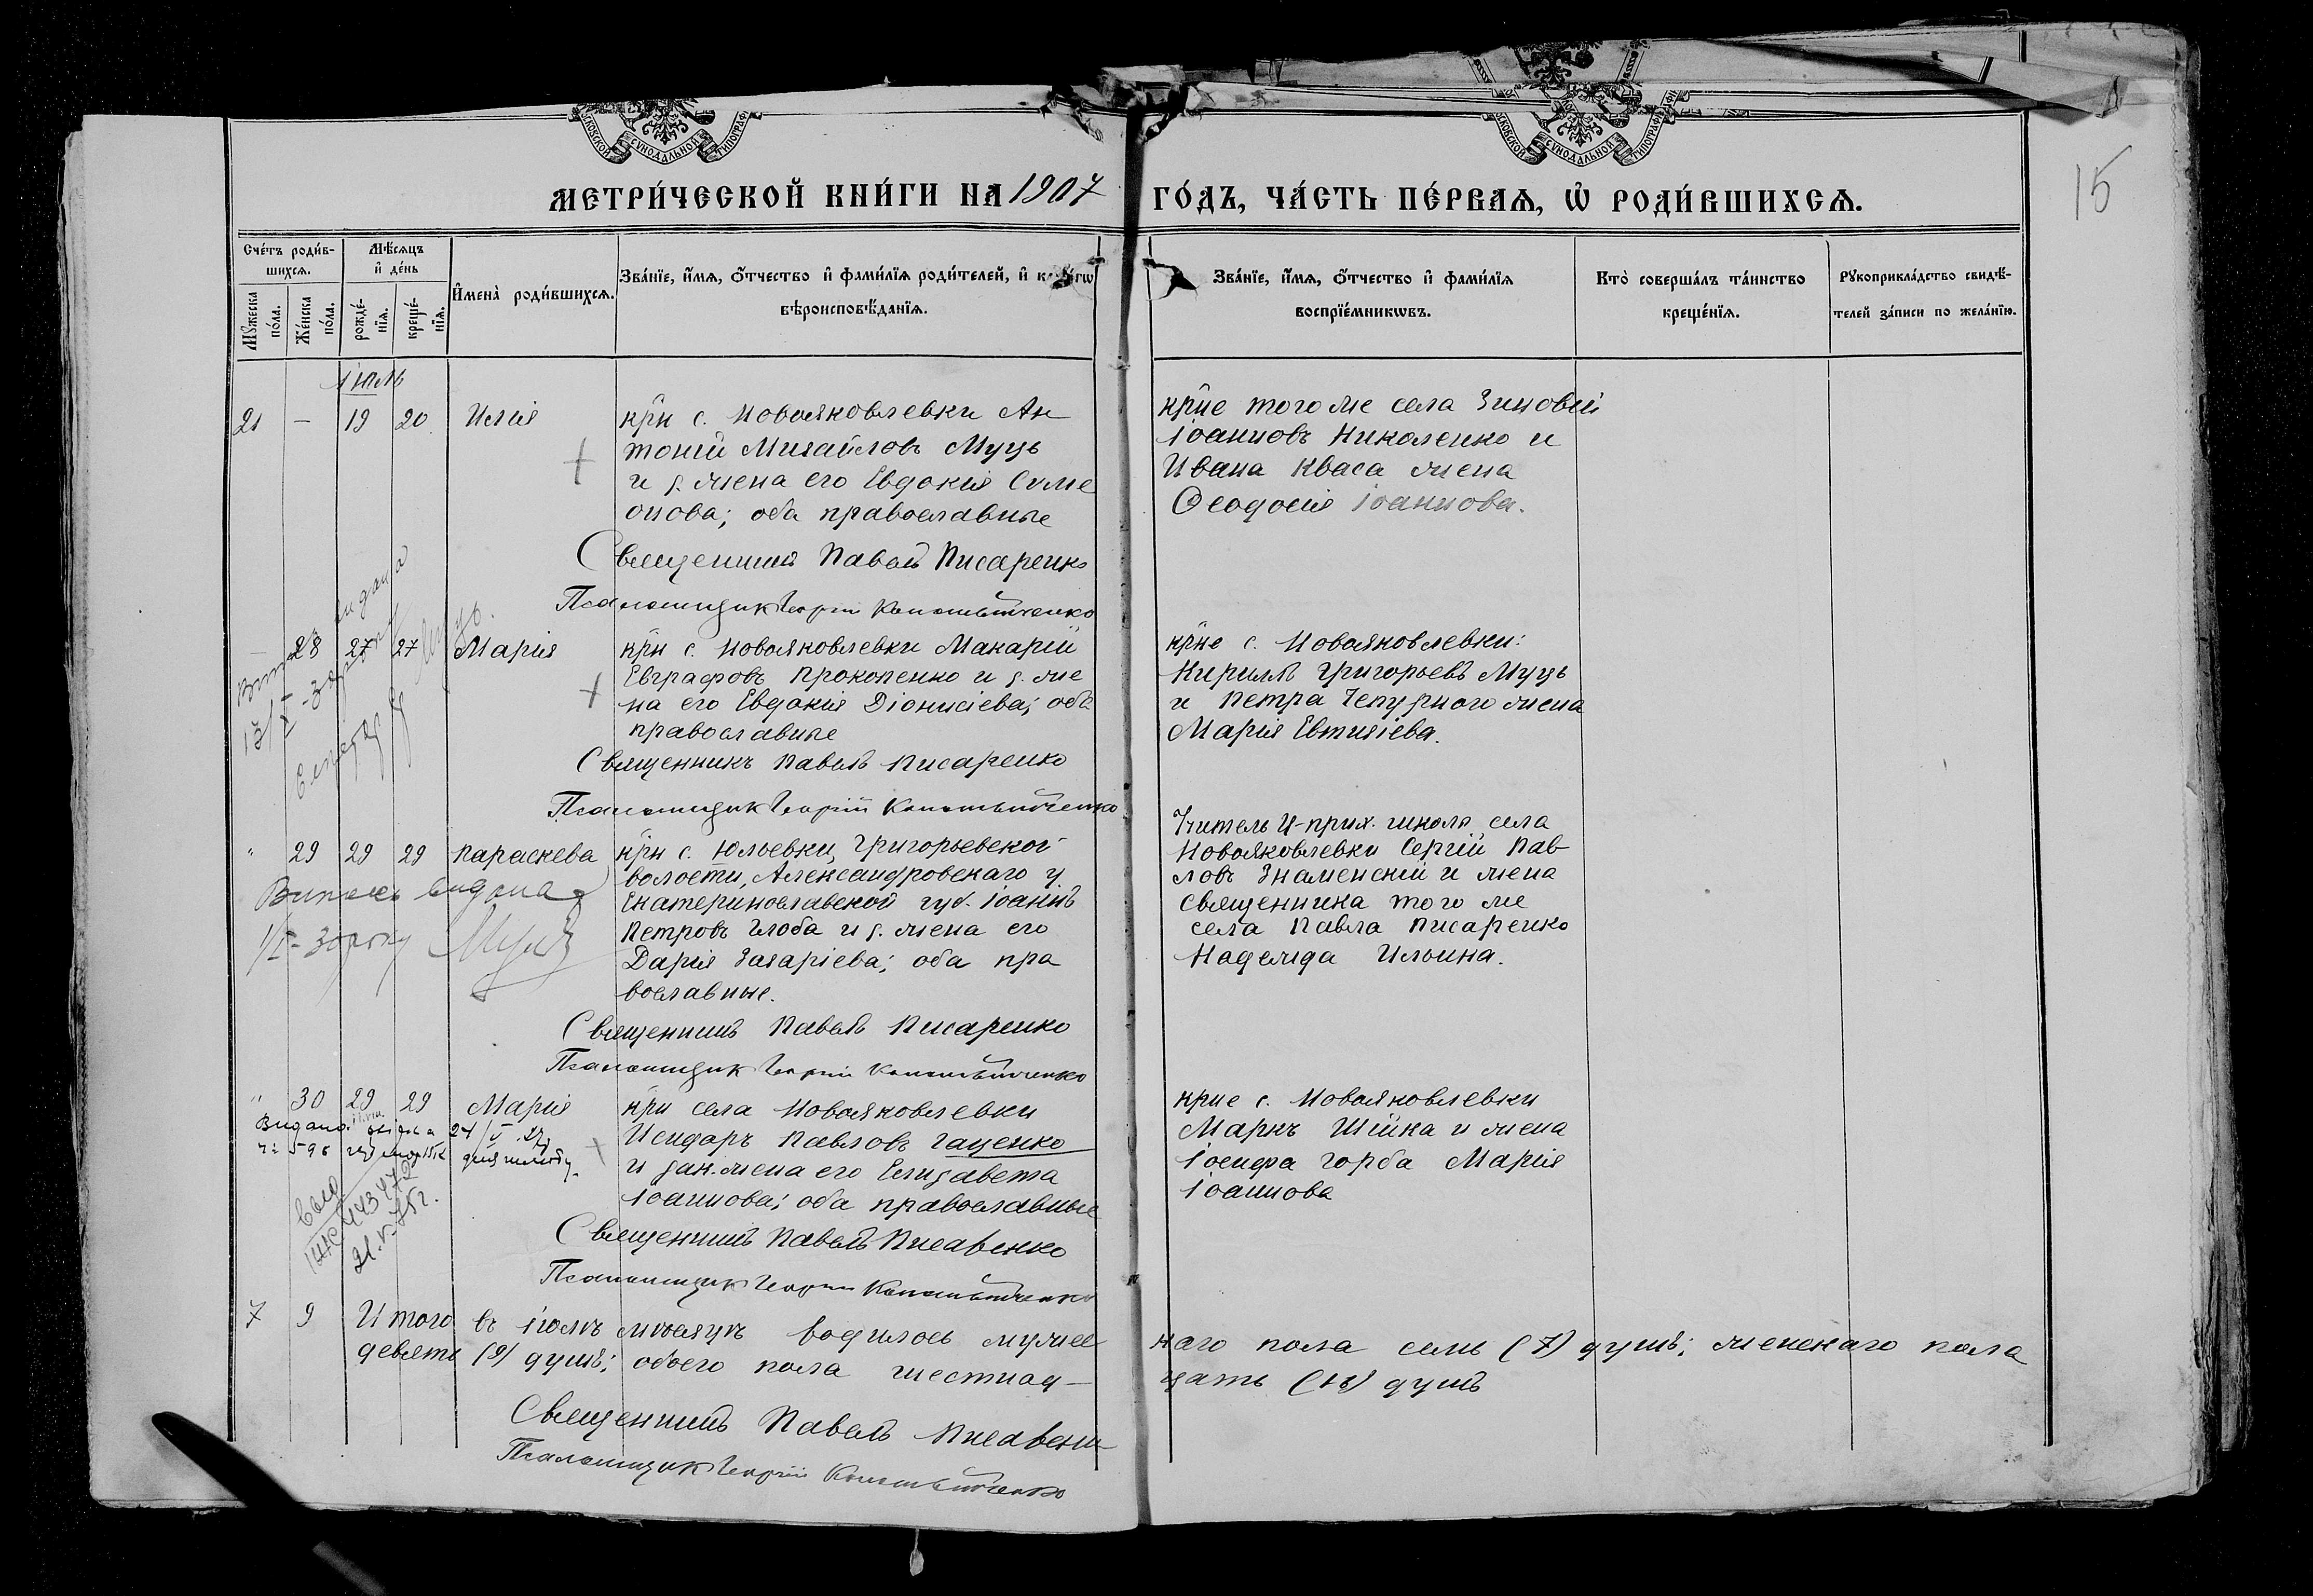 МЕТРИ́ЧЕСКОЙ КНИ́ГИ НА 1907 ГО́ДЪ, ЧА́СТЬ ПЕ́РВАѦ, Ѡ҆ РОДИ́ВШИХСѦ.
15
Сче́тъ роди́в-
шихсѧ.
Мꙋ́жеска
по́ла.
Же́нска
по́ла.
Мѣ́сѧцъ
и҆ де́нь
рожде́-
нїѧ.
креще́-
нїѧ.
И҆мена̀ роди́вшихсѧ.
Зва́нїе, и҆́мѧ, ѻ҆́тчество и҆ фами́лїѧ роди́телей, и҆
вѣроисповѣ́данїѧ.
Зва́нїе, и҆́мѧ, ѻ҆́тчество и҆ фами́лїѧ
воспрїе́мникѡвъ.
Кто̀ соверша́лъ та́инство
креще́нїѧ.
Рꙋкоприкла́дство свидѣ́-
телей за́писи по жела́нїю.
Іюль
21 — 19 20 Илія
крн с. Новояковлевки Ан
тоній Михайловъ Муць
и з. жена его Евдокія Симе
онова; оба православные
Священникъ Павелъ Писаренко
Псаломщик Георгій
крне того же села Зиновій
Іоанновъ Николенко и
Ивана Кваса жена
Ѳеодосія Іоаннова.
28 27 27 Марія
крн с. Новояковлевки Макарій
Евграфовъ Прокопенко и з. же
на его Евдокія Діонисіева; оба
православные
Священникъ Павелъ Писаренко
Псаломщик Георгій
крне с. Новояковлевки:
Кириллъ Григорьевъ Муць
и Петра Чепурного жена
Марія Евтихіева.
" 29 29 29 Параскева
крн с. Юльевки, Григорьевской
волости, Александровскаго у
Екатеринославской губ. Іоаннъ
Петровъ Глоба и з. жена его
Дарія Захаріева; оба пра
вославные.
Священникъ Павелъ Писаренко
Псаломщик Георгій
Учитель ц-прих. школы села
Новояковлевки Сергій Пав-
ловъ Знаменскій и жена
священника того же
села Павла Писаренко
Надежда Ильина.
" 30 29 29 Марія
крн села Новояковлевки
Исидоръ Павловъ Гаценко
и зак. жена его Елизавета
Іоаннова; оба православные
Священникъ Павелъ Писаренко
Псаломщик Георгій
крне с. Новояковлевки
Маркъ Шійка и жена
Іосифа Горба Марія
Іоаннова
7 9 Итого въ іюлѣ мѣсяцѣ родилось мужес
каго пола семь (7) душъ; женскаго пола
девять (9) душъ; обоего пола шестнад-
цать (16) душъ
Священникъ Павелъ Писаренко
Псаломщик Георгій